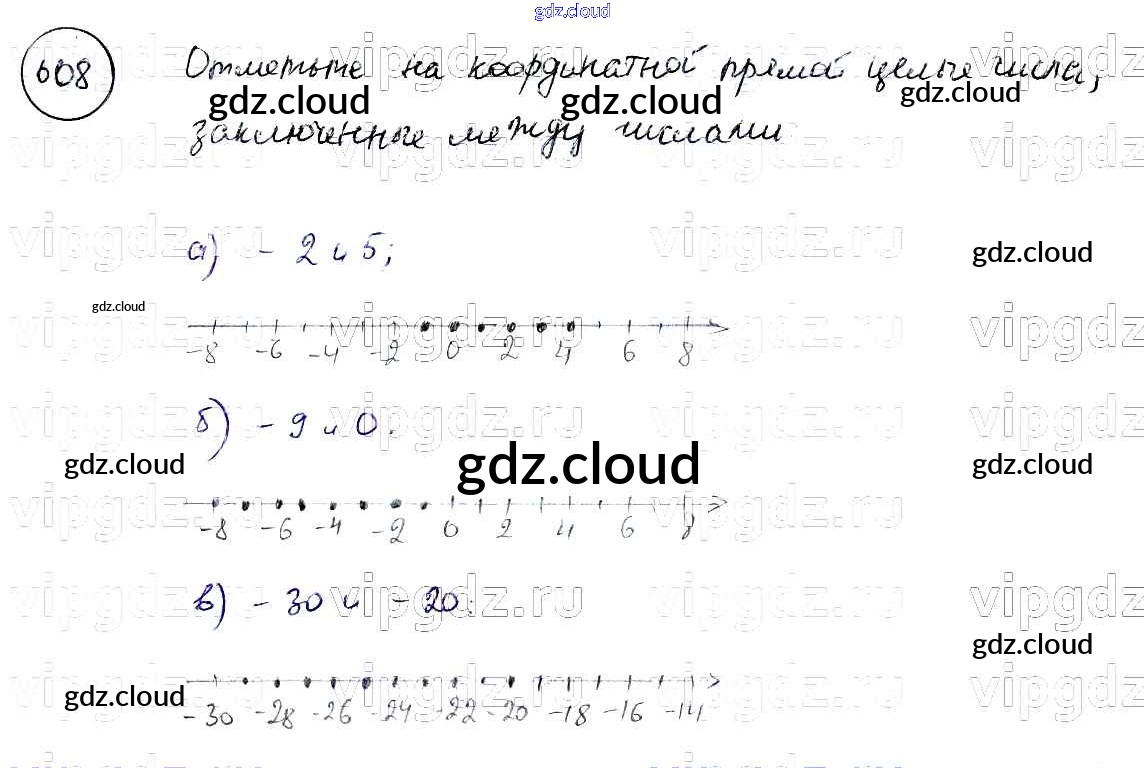 gdz.cloud
608 Отметьте на координатной прямой целые числа,
gdz.cloud gdz.cloud gdz.cloud
заключенные между числами
vipgdz.ru vipgdz.ru vipgdz.ru vipgdz
а) - 2 и 5;
gdz.cloud
gdz.cloud
-8 -6 -4 -2 0 2 4 6 8
б) - 9 и 0.
gdz.cloud gdz.cloud gdz.cloud
-8 -6 -4 -2 0 2 4 6 8
в) - 30 и - 20.
gdz.cloud
gdz.cloud
-30 -28 -26 -24 -22 -20 -18 -16 -14